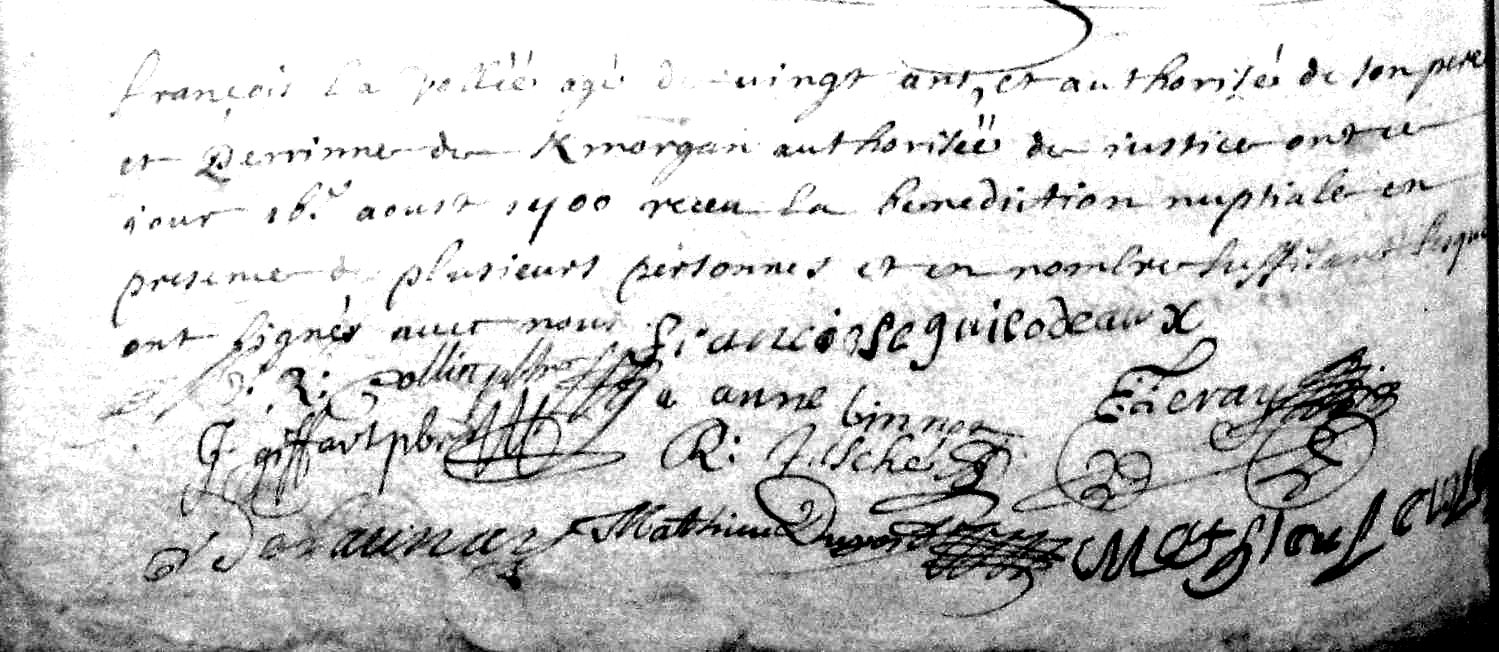 françois la vollée agé de vingt ans, et authorisé de son pere
et Perrinne de Kmorgan authorisée de iustice ont ce
jour 16.e aoust 1700 receu la benediction nuptiale en
presence de plusieurs personnes et en nombre suffisant lesque
ont signés avec nous françoise guicodeaux
R: Collin pbre anne binno
J. giffart pbre R: feray
Delaunay Mathieu